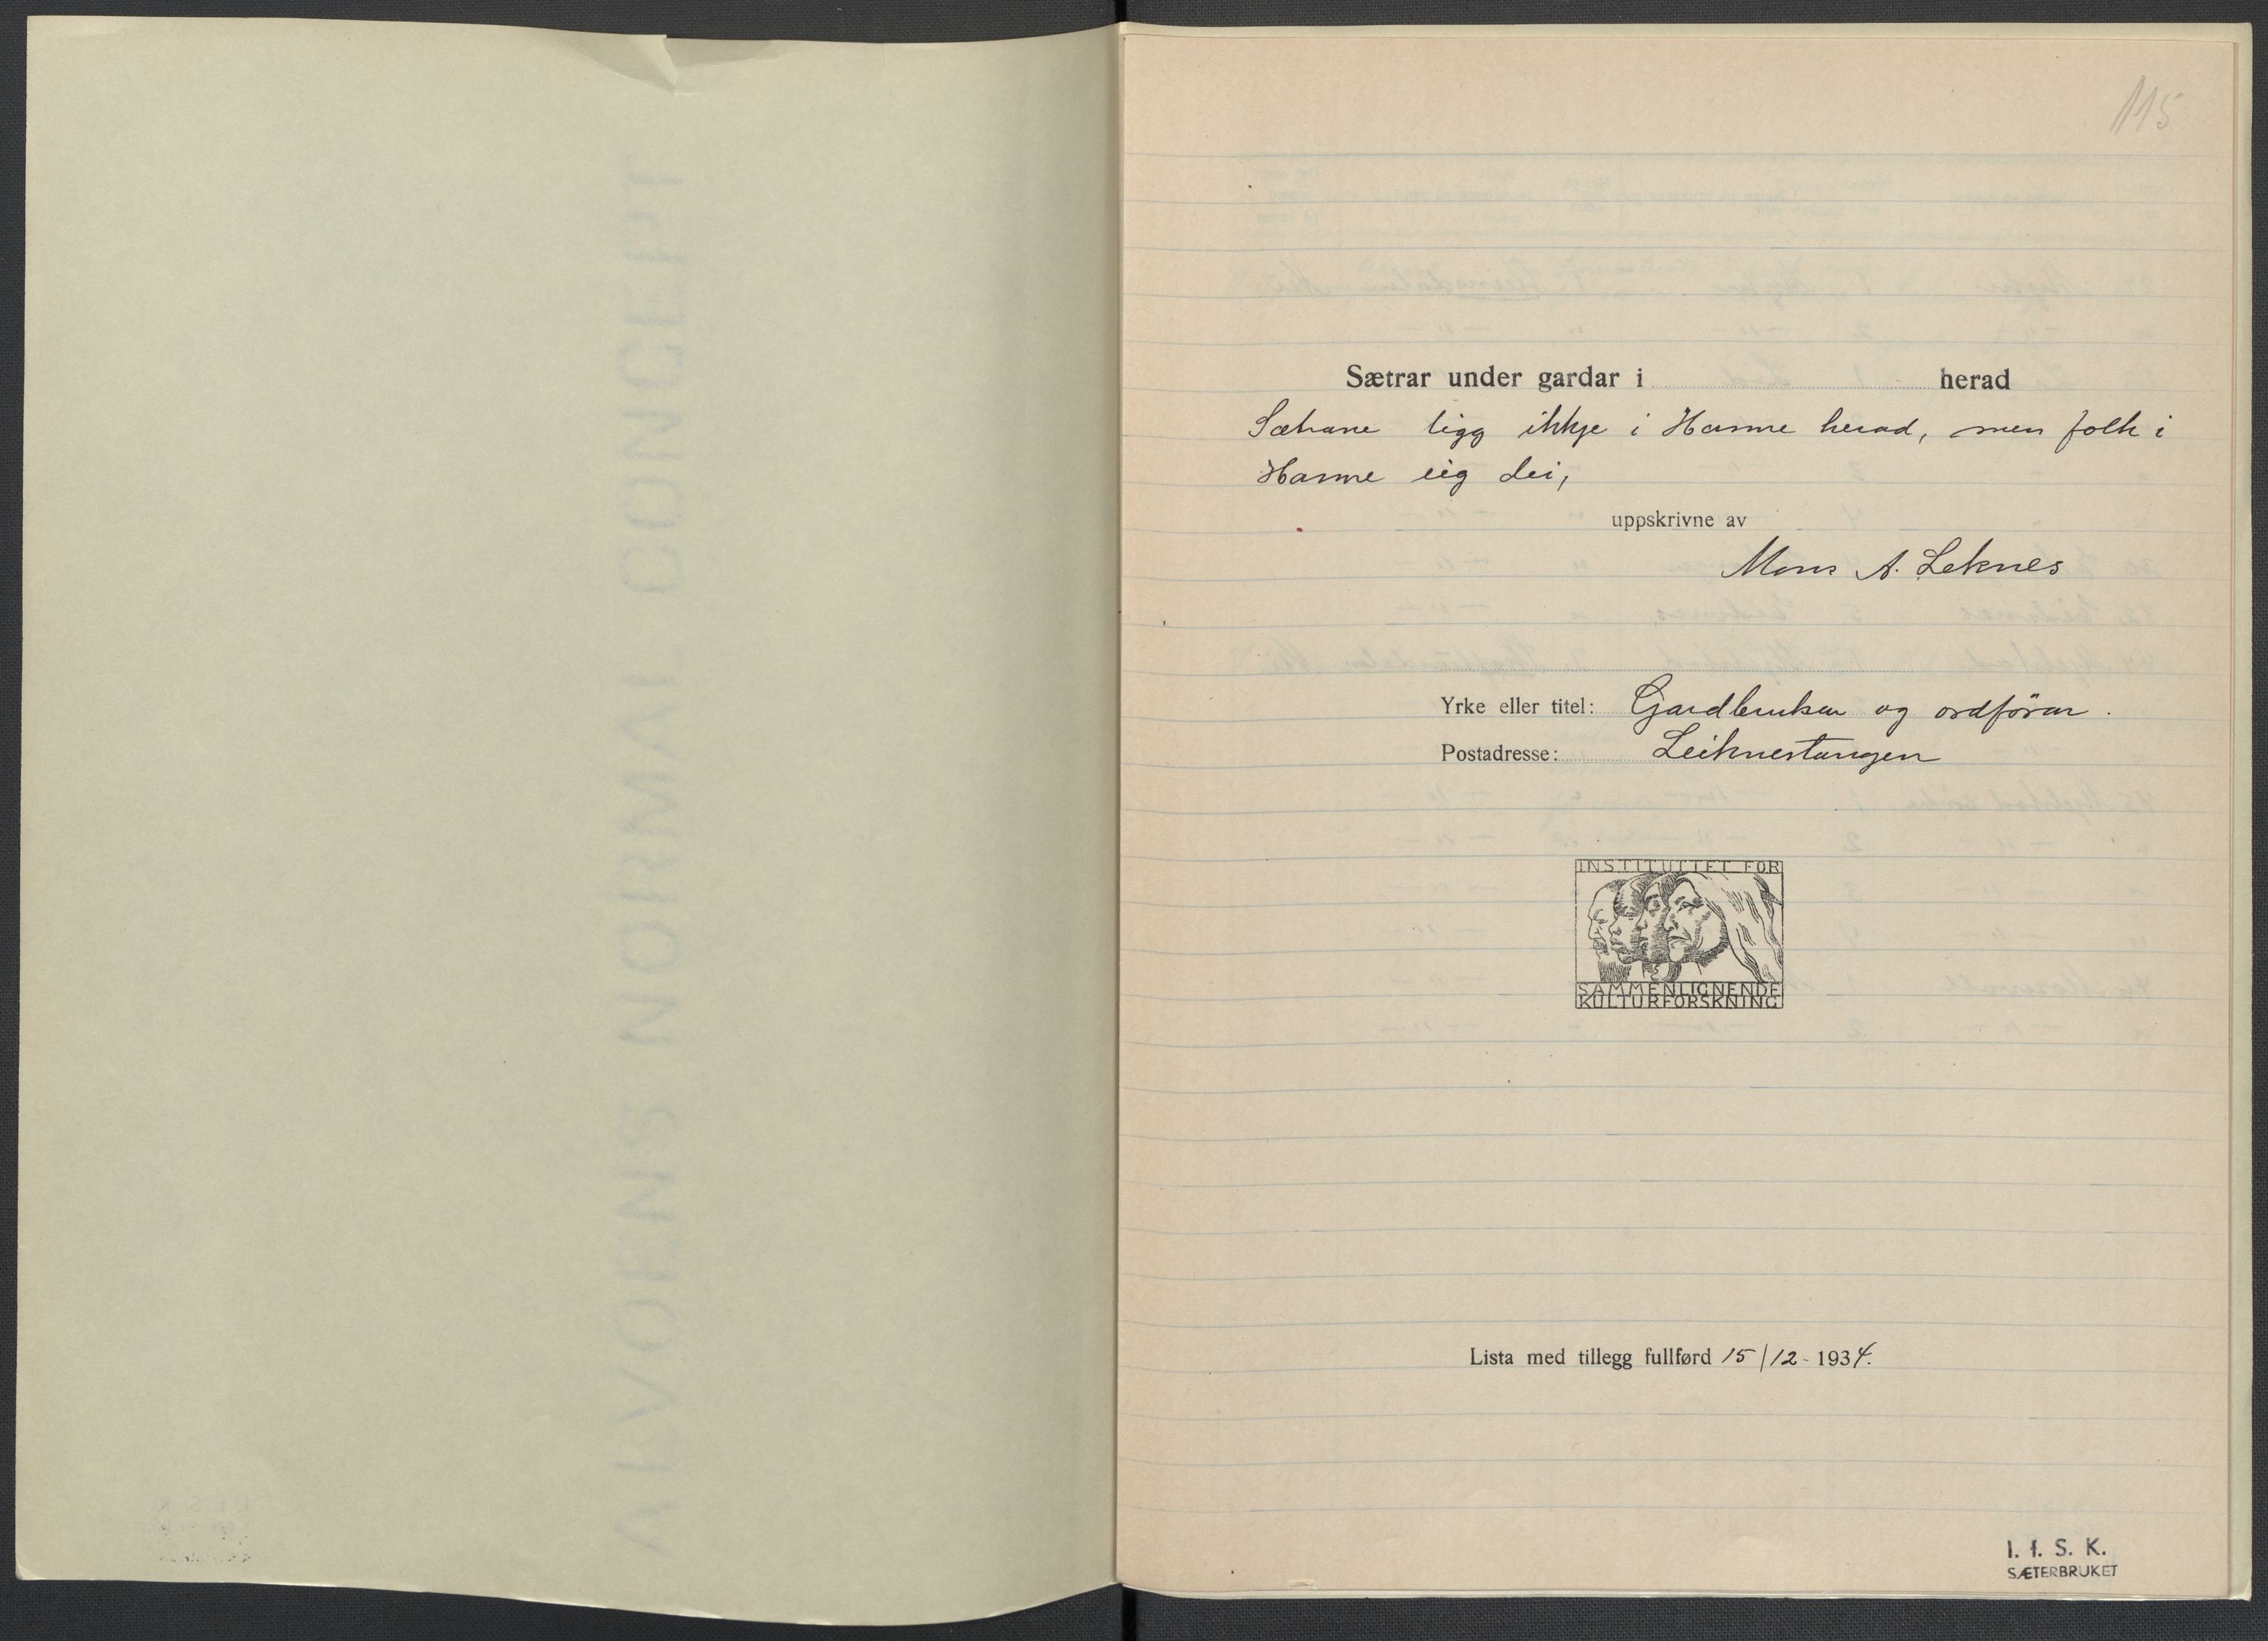 115
Sætrar under gardar i herad
Sætrane ligg ikkje i Hamre herad, men folk i
Hamre eig dei,
uppskrivne av
Mons A. Leknes
Yrke eller titel: Gardbrukar og ordförar.
Postadresse: Leiknestangen
INSTITUTTET FOR
SAMMENLIGNENDE
KULTURFORSKNING
Lista med tillegg fullførd 15/12-1934.
I. f. S. K.
SÆTERBRUKET